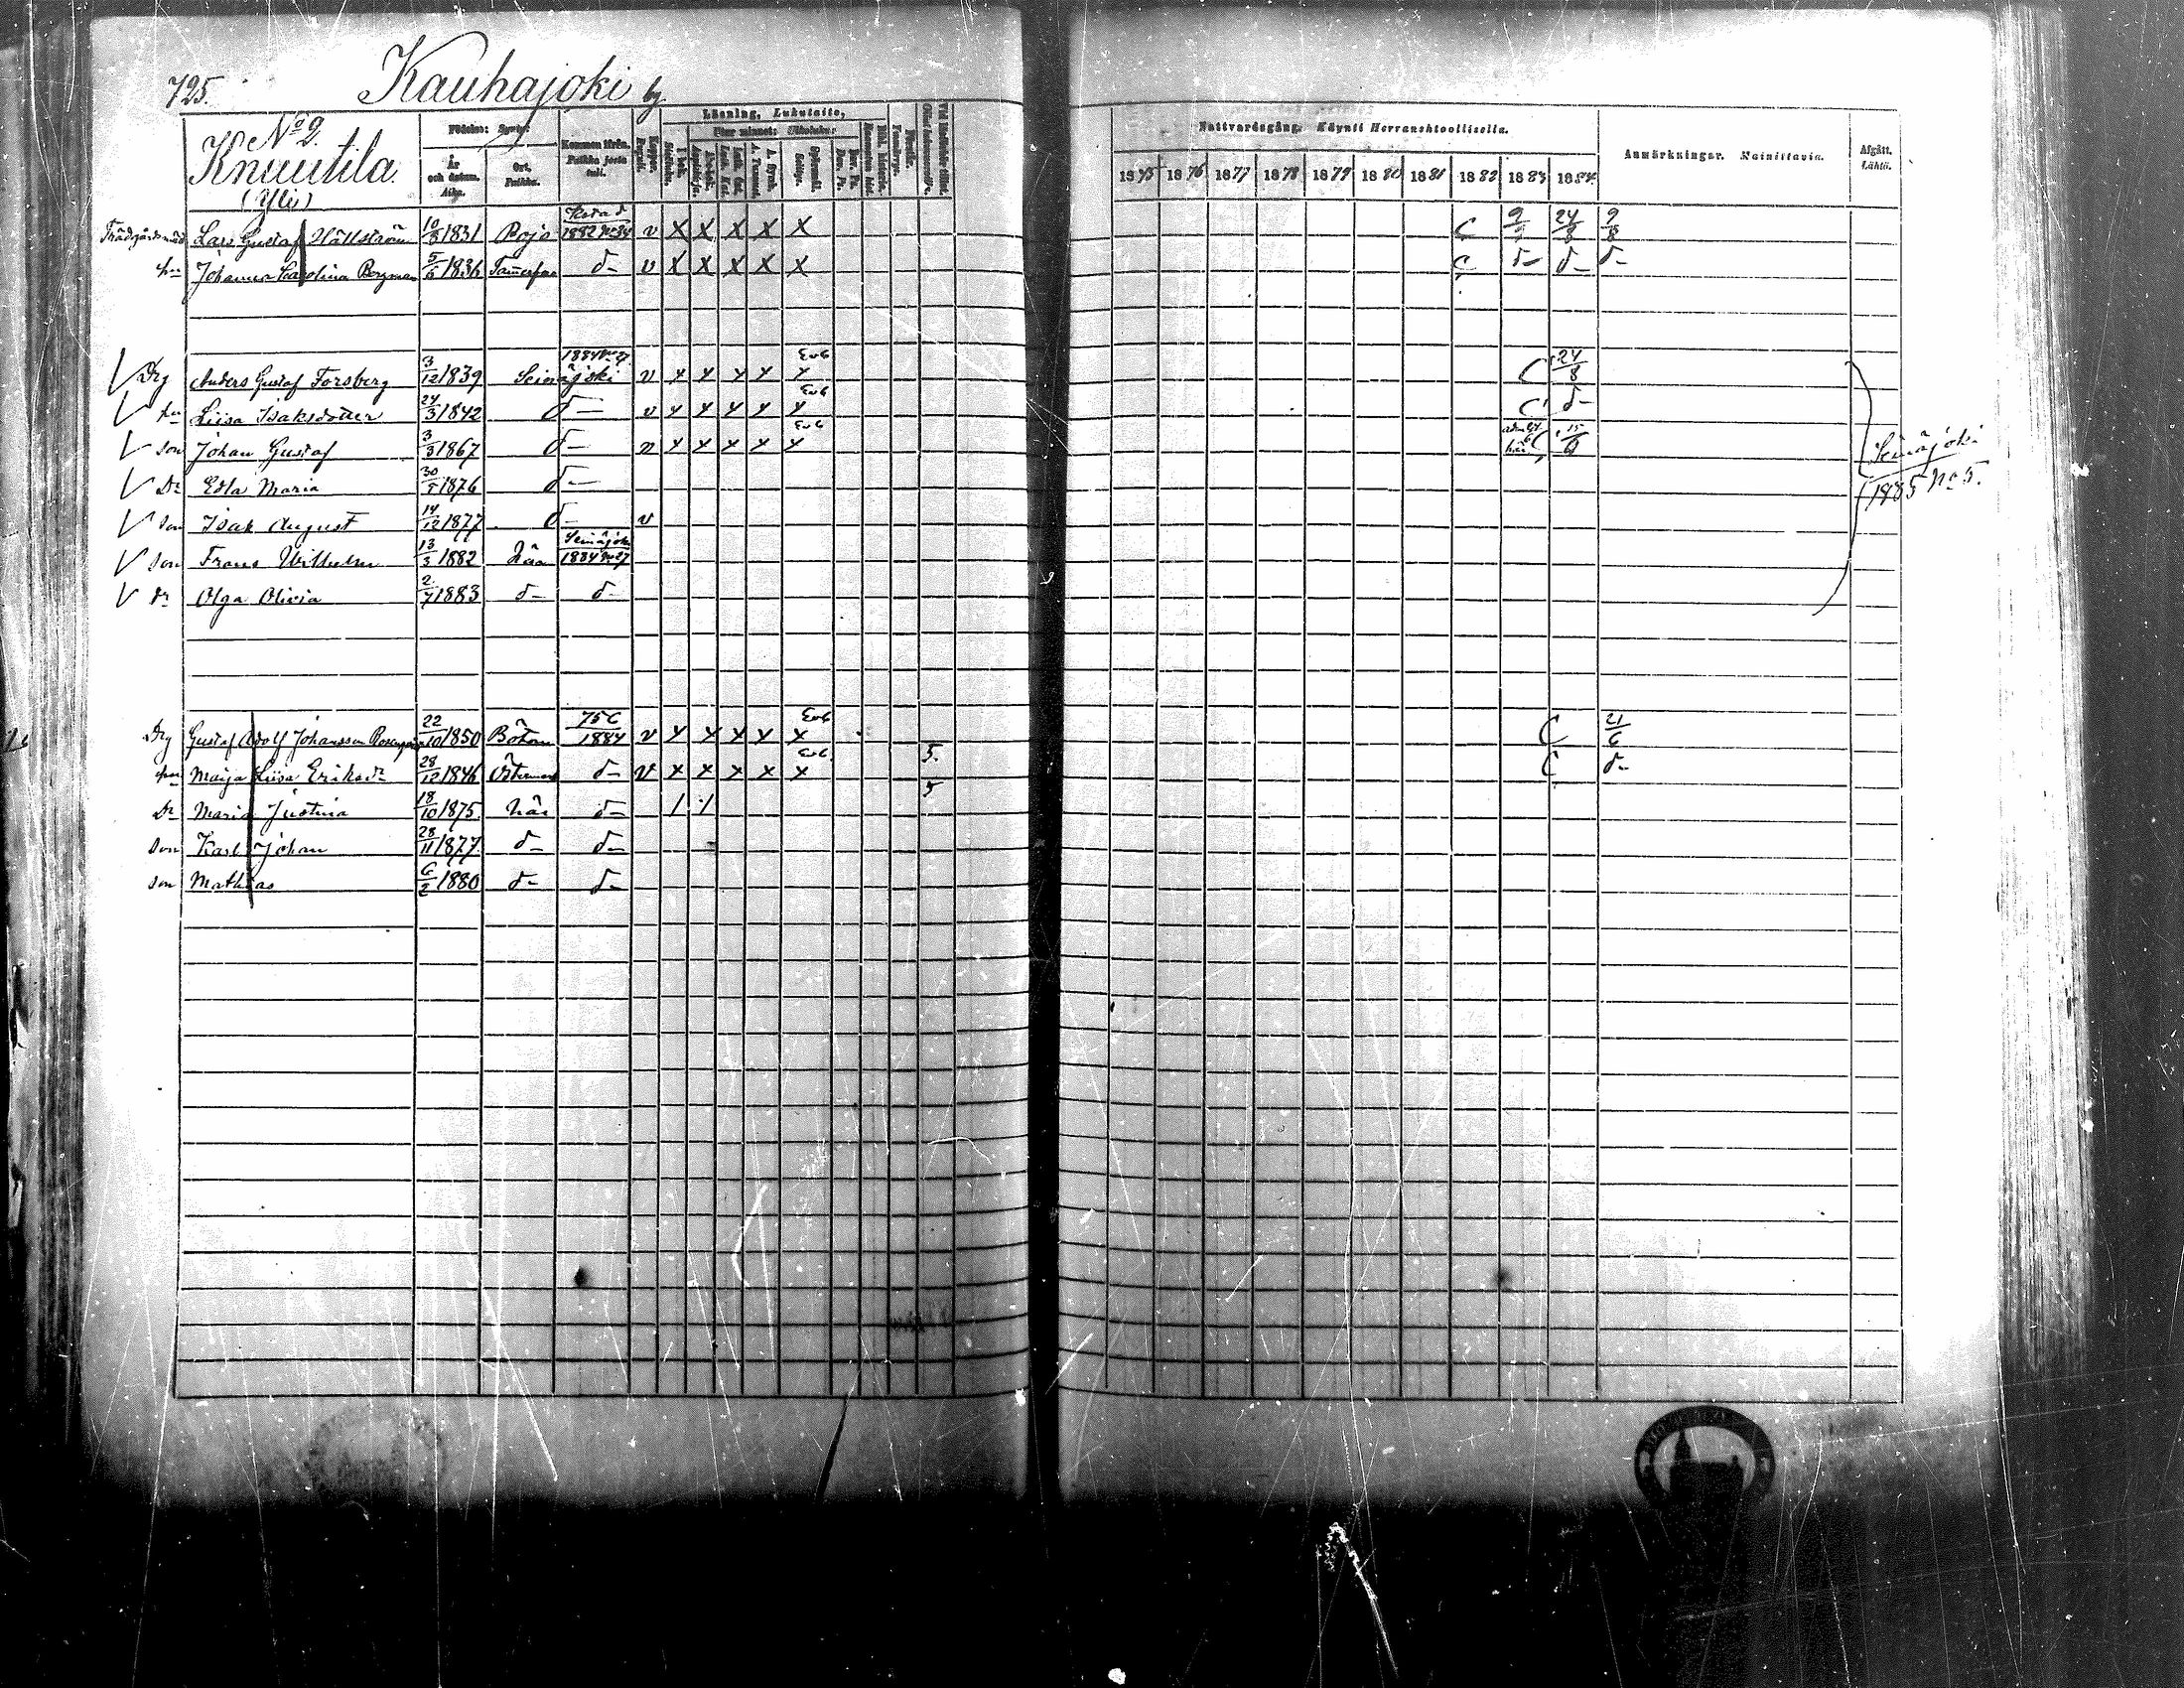 725. Kauhajoki by
No 2.
Knuutila.
(Yli)
Födelse: Synty:
År och datum. Aika.
Ort. Paikka.
Kommen ifrån. Paikka josta tuli.
Koppor. Rupuli.
Läsning, Lukutaito,
Utur minnet: Ulkoluku:
I bok. Sisäluku.
Nattvardsgång. Käynti Herranehtoollisella.
1875 1876 1877 1878 1879 1880 1881 1882 1883 1884
Anmärkningar. Mainittavia.
Afgått. Lähtö.
Lars Gustaf Hällström 10/8 1831 Pojo 1882 No 34 v X X X X X C 24/8 9/8
Johanna Carolina Bergman 5/6 1836 Tammerfors d- v X X X X X C d- d- d-
1884 No 27 Evb
Drg Anders Gustaf Forsberg 3/12 1839 Seinäjoki v x x x x x C 24/8
Evb
hu Liisa Isaksdotter 24/3 1842 d- v x x x x x C d-
Evb
son Johan Gustaf 3/3 1867 d- n x x x x x
Dr Edla Maria 30/5 1876 d-
son Isak August 14/12 1877 d- v
son Frans Wilhelm 13/3 1882 här Seinäjoki 1884 No 27
dr Olga Olivia 2/7 1883 d- d-
Seinäjoki
1885 No 5.
Drg Gustaf Adolf Johansson 22/10 1850 Bötom 756/1884 v x x x x x Evb C 21/6
hu Maija Liisa Eriksdr 28/12 1846 Östermark d- v x x x x x Evb 5. C d-
Dr Maria Justina 18/10 1875 här d- / / 5
Son Karl Johan 28/11 1877 d- d-
son Mathias 6/2 1880 d- d-